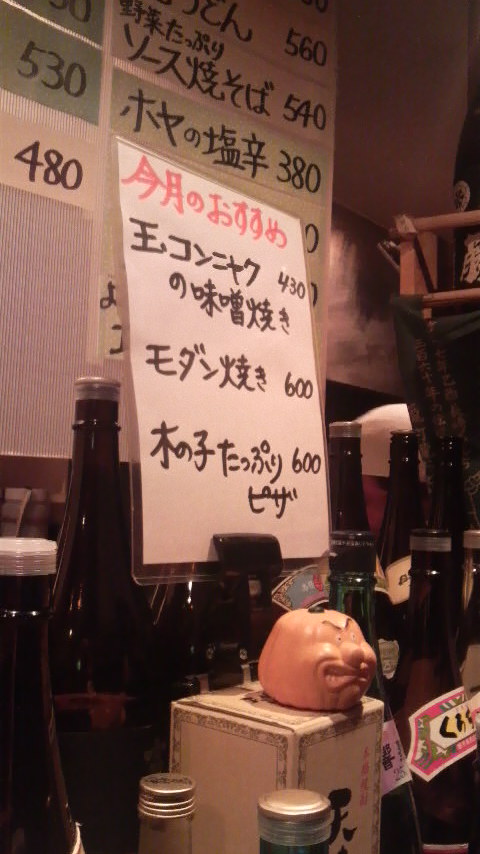 530
480
うどん 560
野菜たっぷり
ソース焼そば 540
ホヤの塩辛 380
今月のおすすめ
玉コンニャク 430
の味噌焼き
モダン焼き 600
木の子たっぷり 600
ピザ